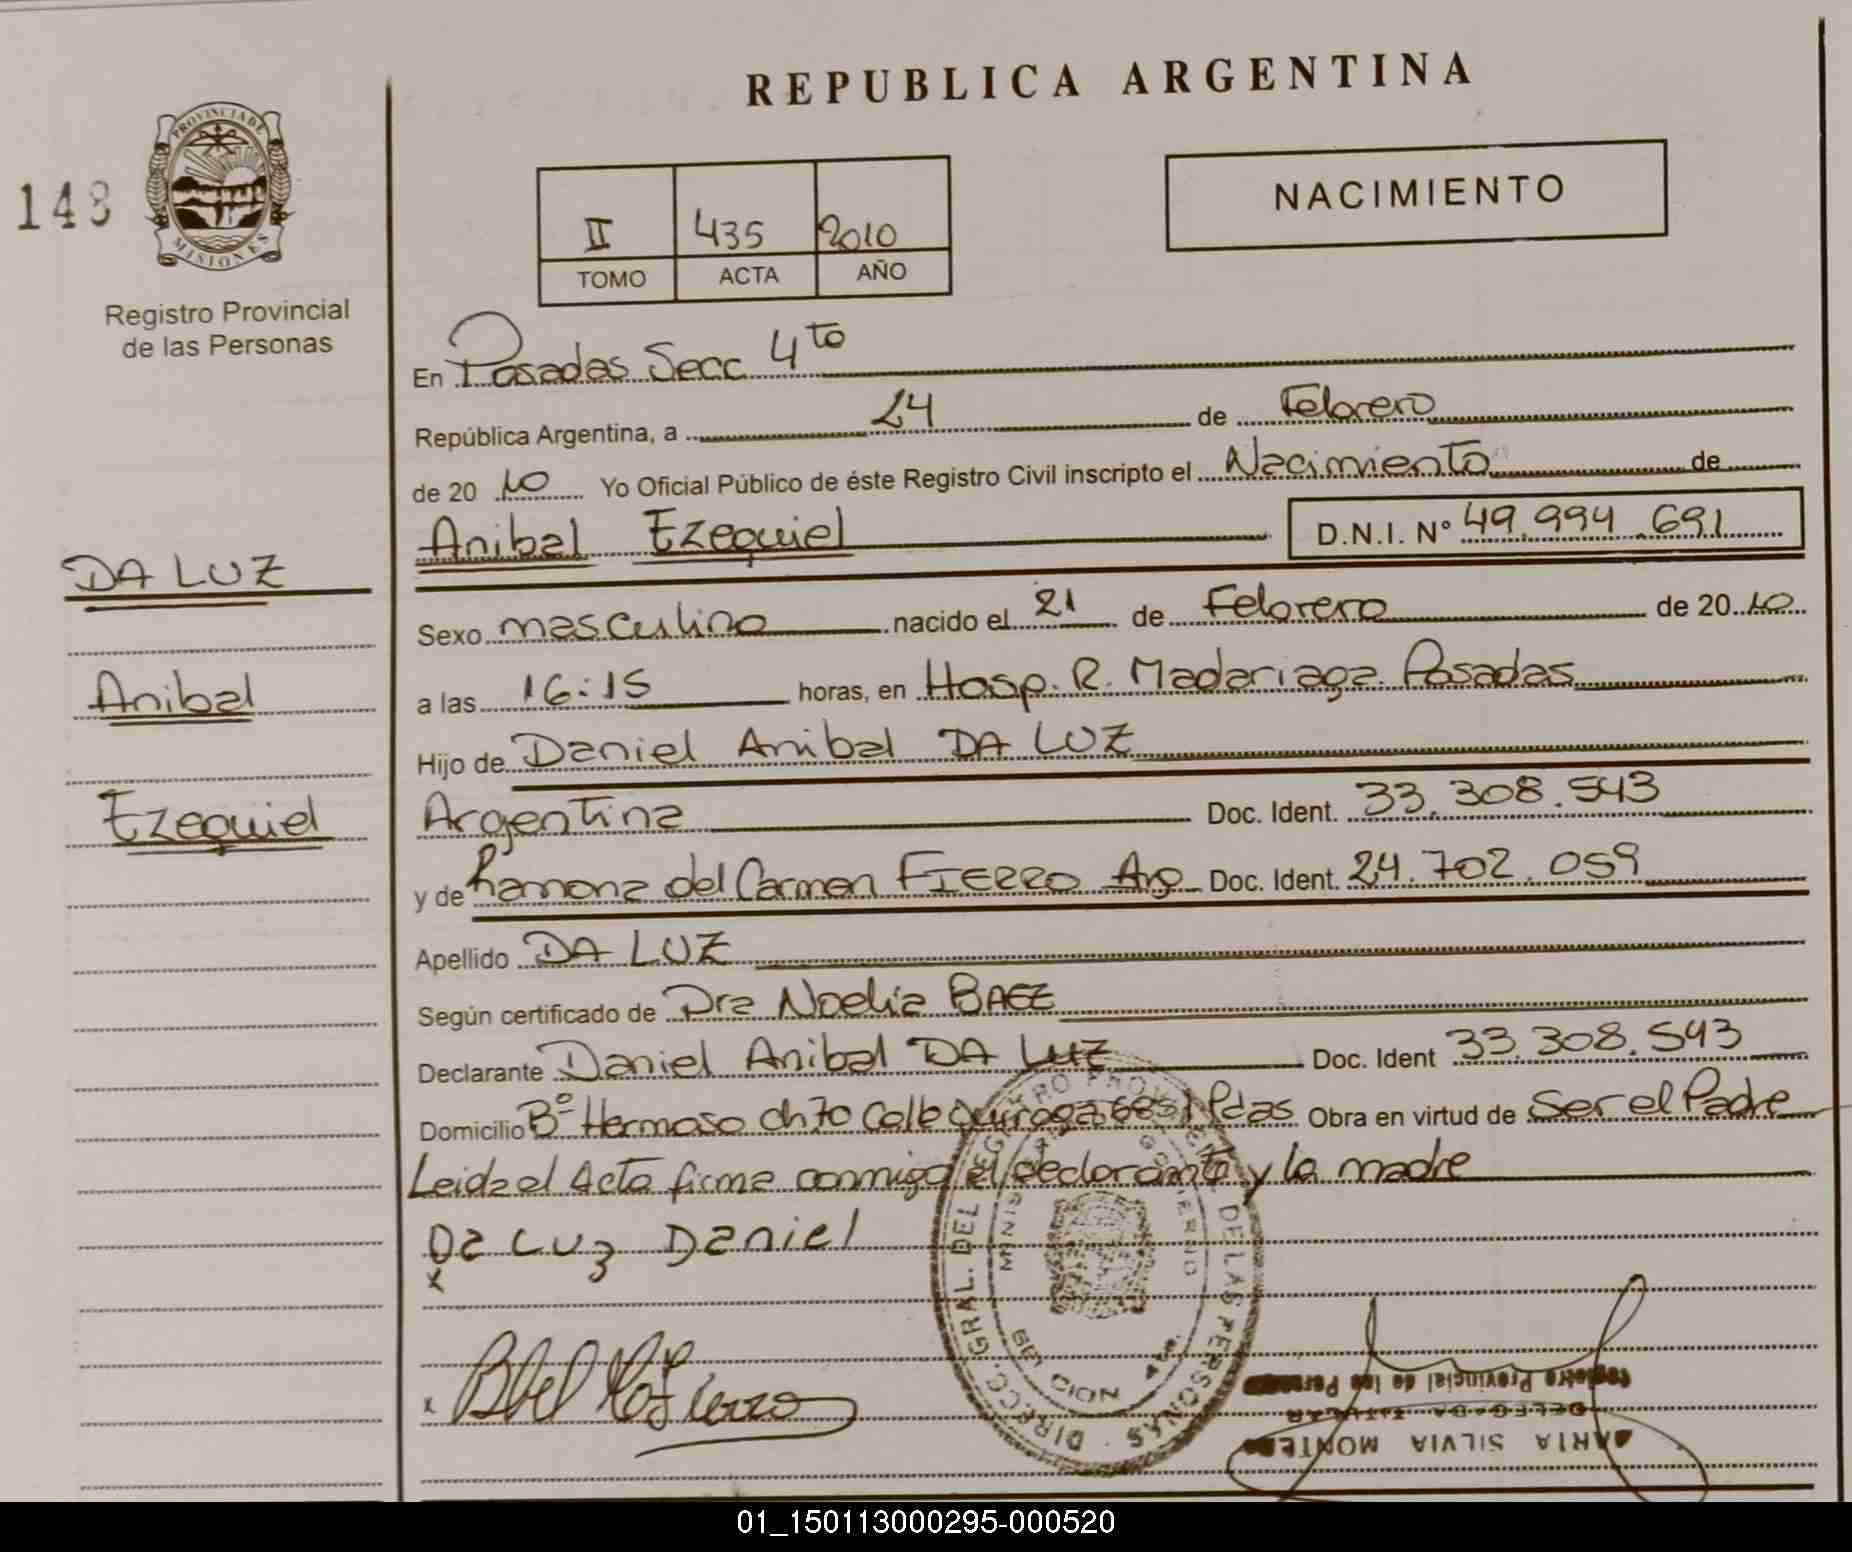 REPUBLICA ARGENTINA
148
PROVINCIA DE
MISIONES
Registro Provincial
de las Personas
II 435 2010
TOMO ACTA AÑO
NACIMIENTO
En Posadas Secc 4to
República Argentina, a 24 de Febrero
de 2010 Yo Oficial Público de éste Registro Civil inscripto el Nacimiento de
Anibal Ezequiel D.N.I. Nº 49.994.691
DA LUZ
Anibal
Ezequiel
Sexo masculino nacido el 21 de Febrero de 2010
a las 16:15 horas, en Hosp. R. Madariaga Posadas
Hijo de Daniel Anibal DA LUZ
Argentina Doc. Ident. 33.308.543
y de Ramona del Carmen FIERRO Arg Doc. Ident. 24.702.059
Apellido DA LUZ
Según certificado de Dra Noelia BAEZ
Declarante Daniel Anibal DA LUZ Doc. Ident 33.308.543
Domicilio Bº Hermoso ch 70 Calle Quiroga 6851 Pdas Obra en virtud de Ser el Padre
Leida el Acta firma conmigo el declarante y la madre
Da Luz Daniel
x
x
DIRECC. GRAL. DEL REGISTRO PROVINCIAL DE LAS PERSONAS
MINIS GOBIERNO
Registro Provincial de las Personas
DELEGADA TITULAR
MARIA SILVIA
01_150113000295-000520